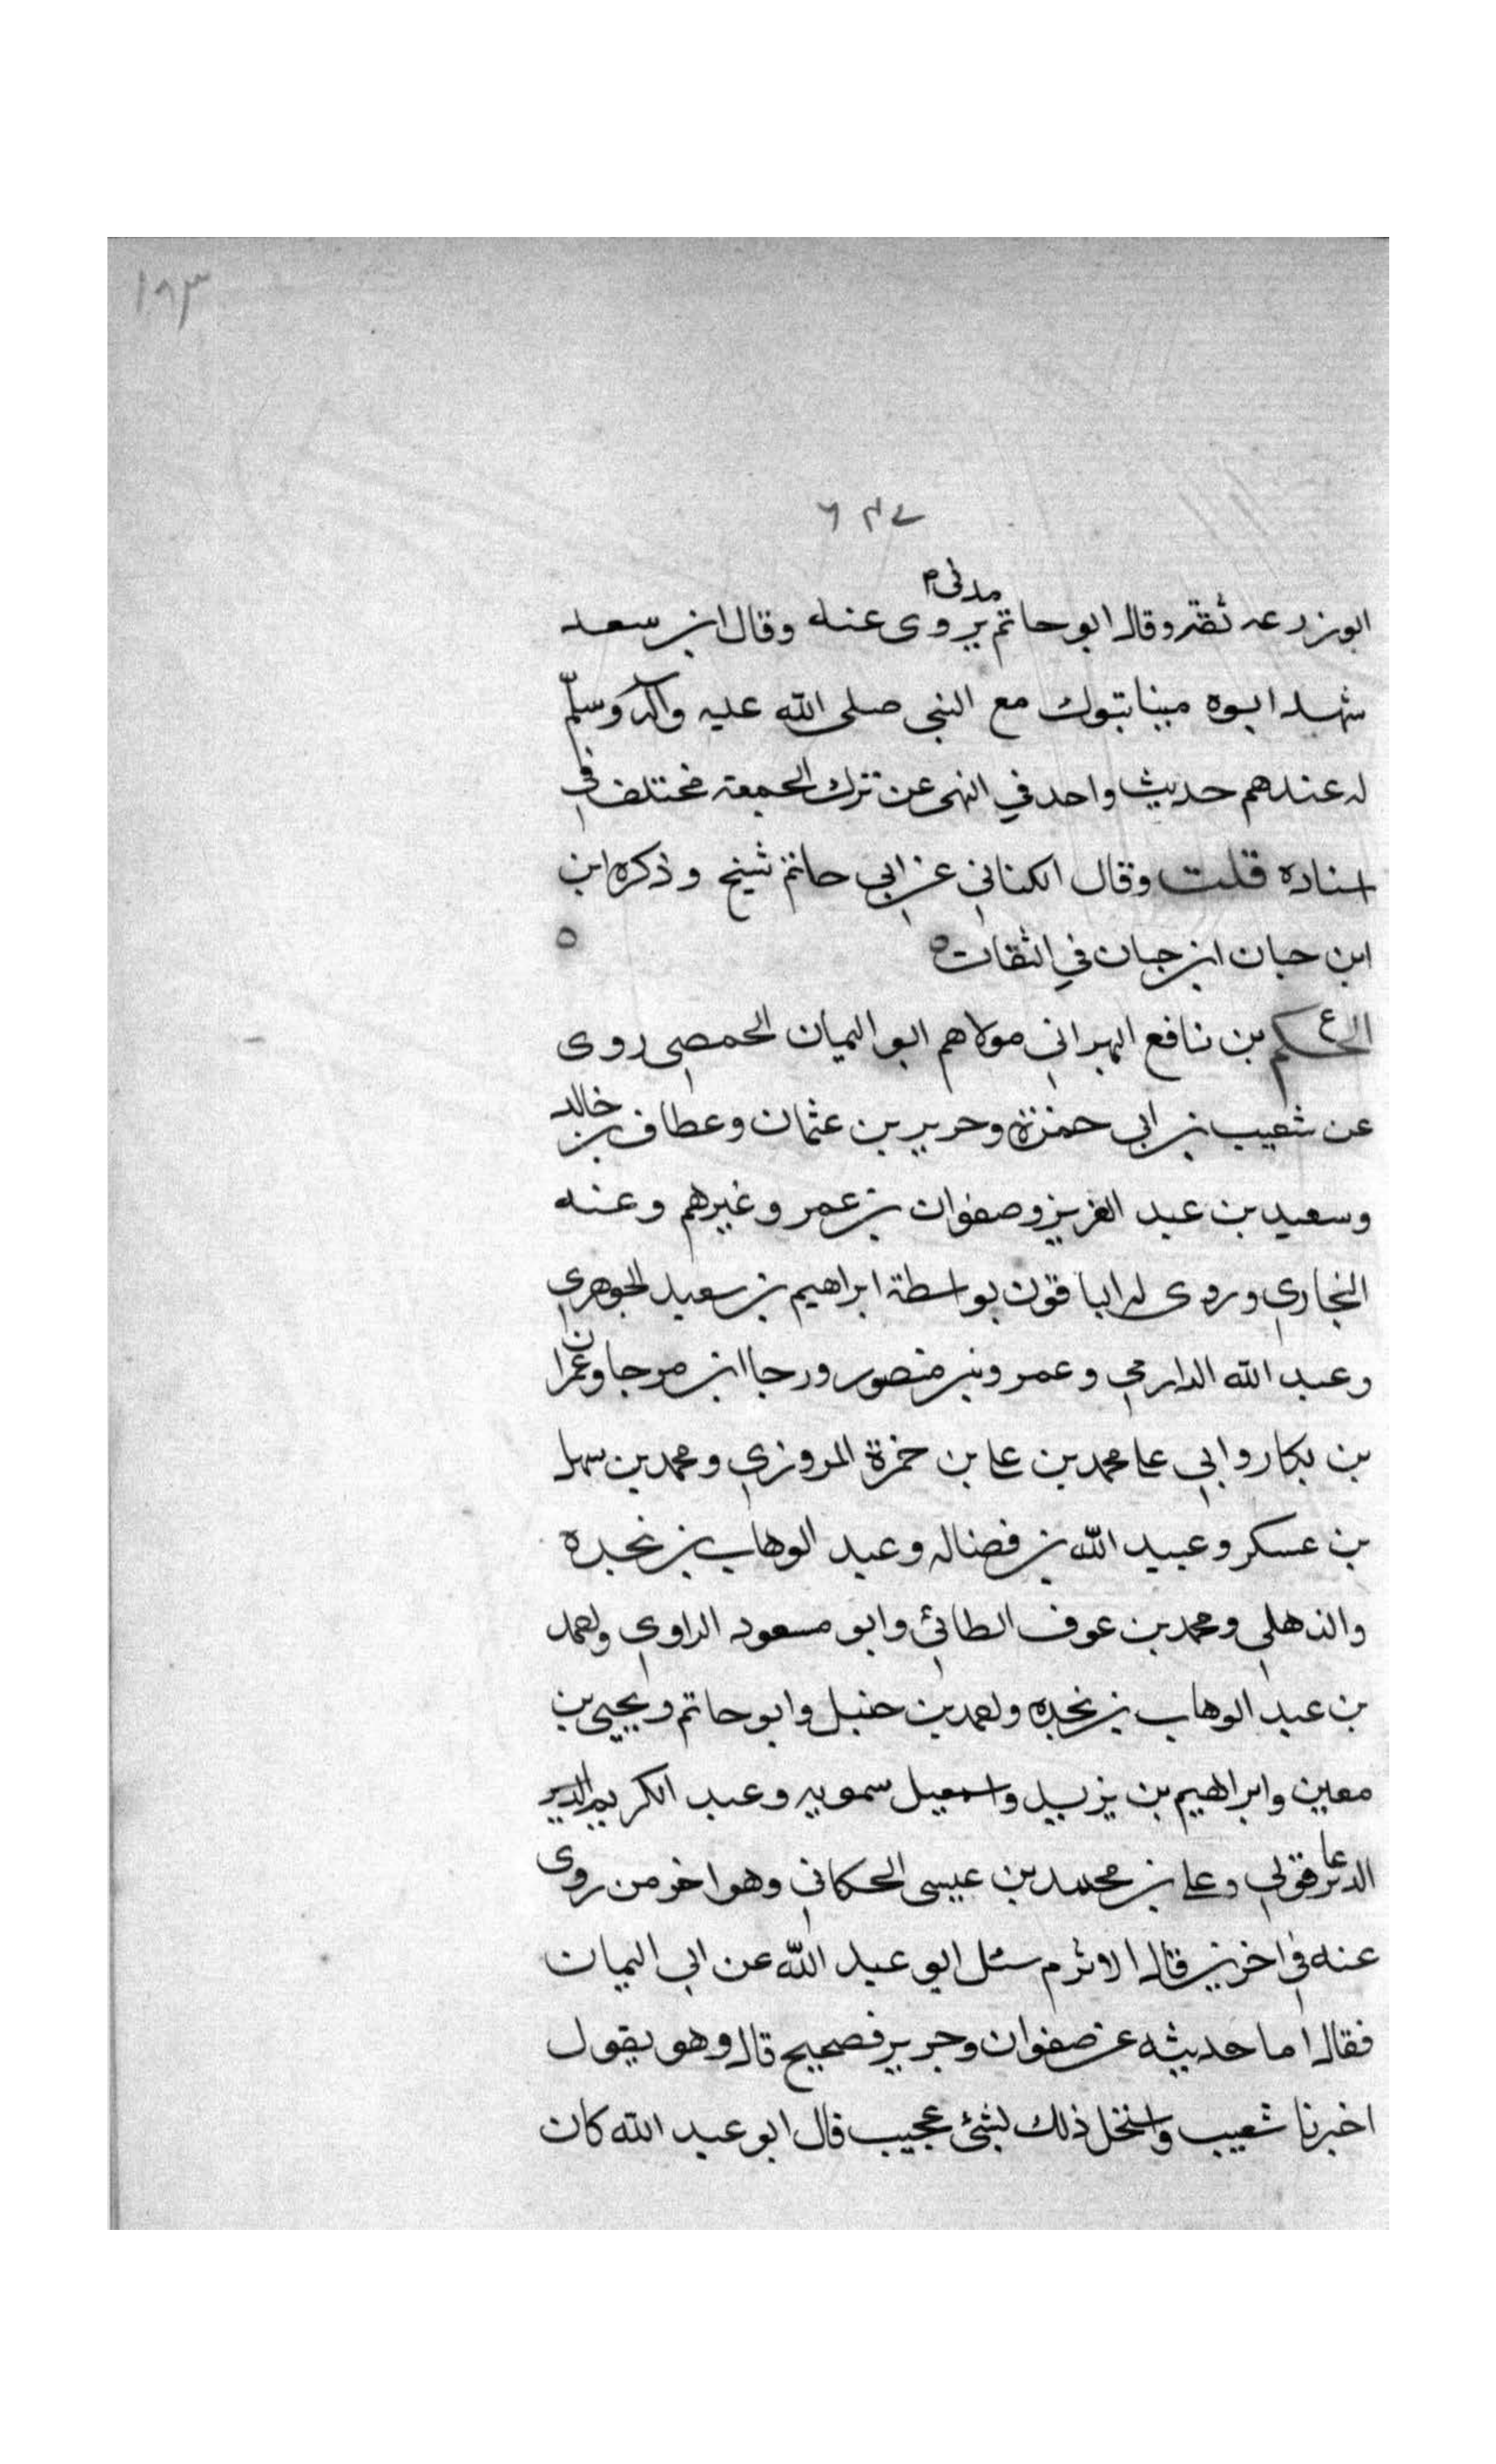 ١٨٣
ابو زرعه ثقة وقال ابو حاتم مدني يروى عنه وقال ابن سعد
شهد ابوه مينا تبوك مع النبي صلى الله عليه وآله وسلّم
له عندهم حديث واحد في النهى عن ترك الجمعة مختلف في
اسناده قلت وقال الكناني عن ابي حاتم شيخ وذكره ابن
ابن حبان ابن حبان في الثقات ه
الحكم ع بن نافع البهراني مولاهم ابو اليمان الحمصي روى
عن شعيب بن ابي حمزة وحرير بن عثمان وعطاف بن خالد
وسعيد بن عبد العزيز وصفوان بن عمر وغيرهم وعنه
البخاري وروى له الباقون بواسطة ابراهيم بن سعيد الجوهري
وعبد الله الدارمي وعمرو بن منصور ورجا ابن مرجا وعمران
بن بكار وابي علي محمد بن علي بن حمزة المروزي ومحمد بن سهل
بن عسكر وعبيد الله بن فضاله وعبد الوهاب بن نجده
والذهلي ومحمد بن عوف الطائي وابو مسعود الراوي واحمد
بن عبد الوهاب بن نجده واحمد بن حنبل وابو حاتم ويحيى بن
معين وابراهيم بن يزيد واسمعيل سمويه وعبد الكريم
الدير عاقولي وعلي بن محمد بن عيسى الحكاني وهو اخر من روى
عنه في اخرين قال الاثرم سئل ابو عبد الله عن ابي اليمان
فقال اما حديثه عن صفوان وجرير فصحيح قال وهو يقول
اخبرنا شعيب واستحل ذلك بشئ عجيب قال ابو عبد الله كان